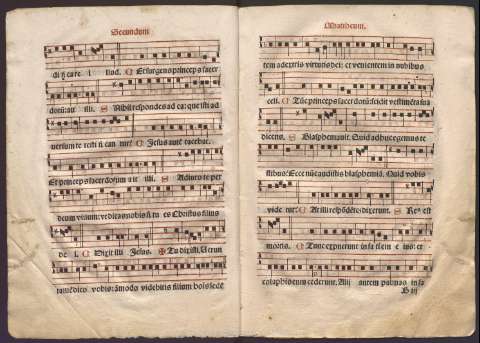 Secundum
di hec are i liud. Et surgens princeps sacer
dotum: ait illi. Nihil respondes ad ea: que isti ad
versum te testi ficantur? Jesus autem tacebat.
Et princeps sacerdotum ait illi. Adiuro te per
deum vivum: ut dicas nobis si tu es Christus filius
dei. Dixit illi Jesus. Tu dixisti. Verun
tamen dico vobis: amodo videbitis filium hominis sede
Mattheum.
tem a dextris virtutis dei: et venientem in nubibus
celi. Tunc princeps sacerdotum scidit vestimenta sua
dicens. Blasphemavit. Quid adhuc egemus te
stibus? Ecce nunc audistis blasphemiam. Quid vobis
videtur? At illi respondentes dixerunt. Reus est
mortis. Tunc expuerunt in faciem eius: et
colaphis eum ceciderunt. Alij autem palmas in fa
B iij